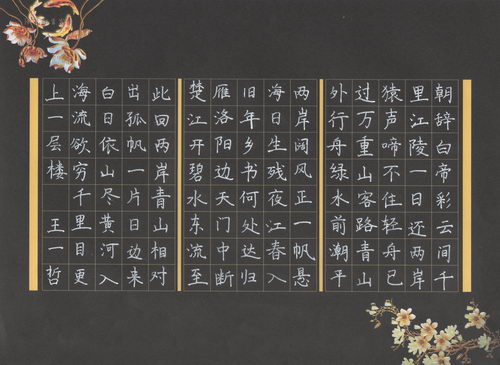 朝辞白帝彩云间千
里江陵一日还两岸
猿声啼不住轻舟已
过万重山客路青山
外行舟绿水前潮平
两岸阔风正一帆悬
海日生残夜江春入
旧年乡书何处达归
雁洛阳边天门中断
楚江开碧水东流至
此回两岸青山相对
出孤帆一片日边来
白日依山尽黄河入
海流欲穷千里目更
上一层楼 王一哲